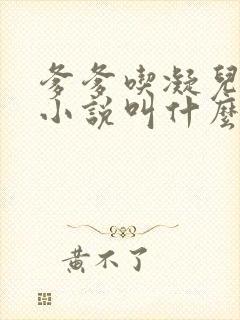 爹爹喫凝兒
小説叫什麼
黃不了